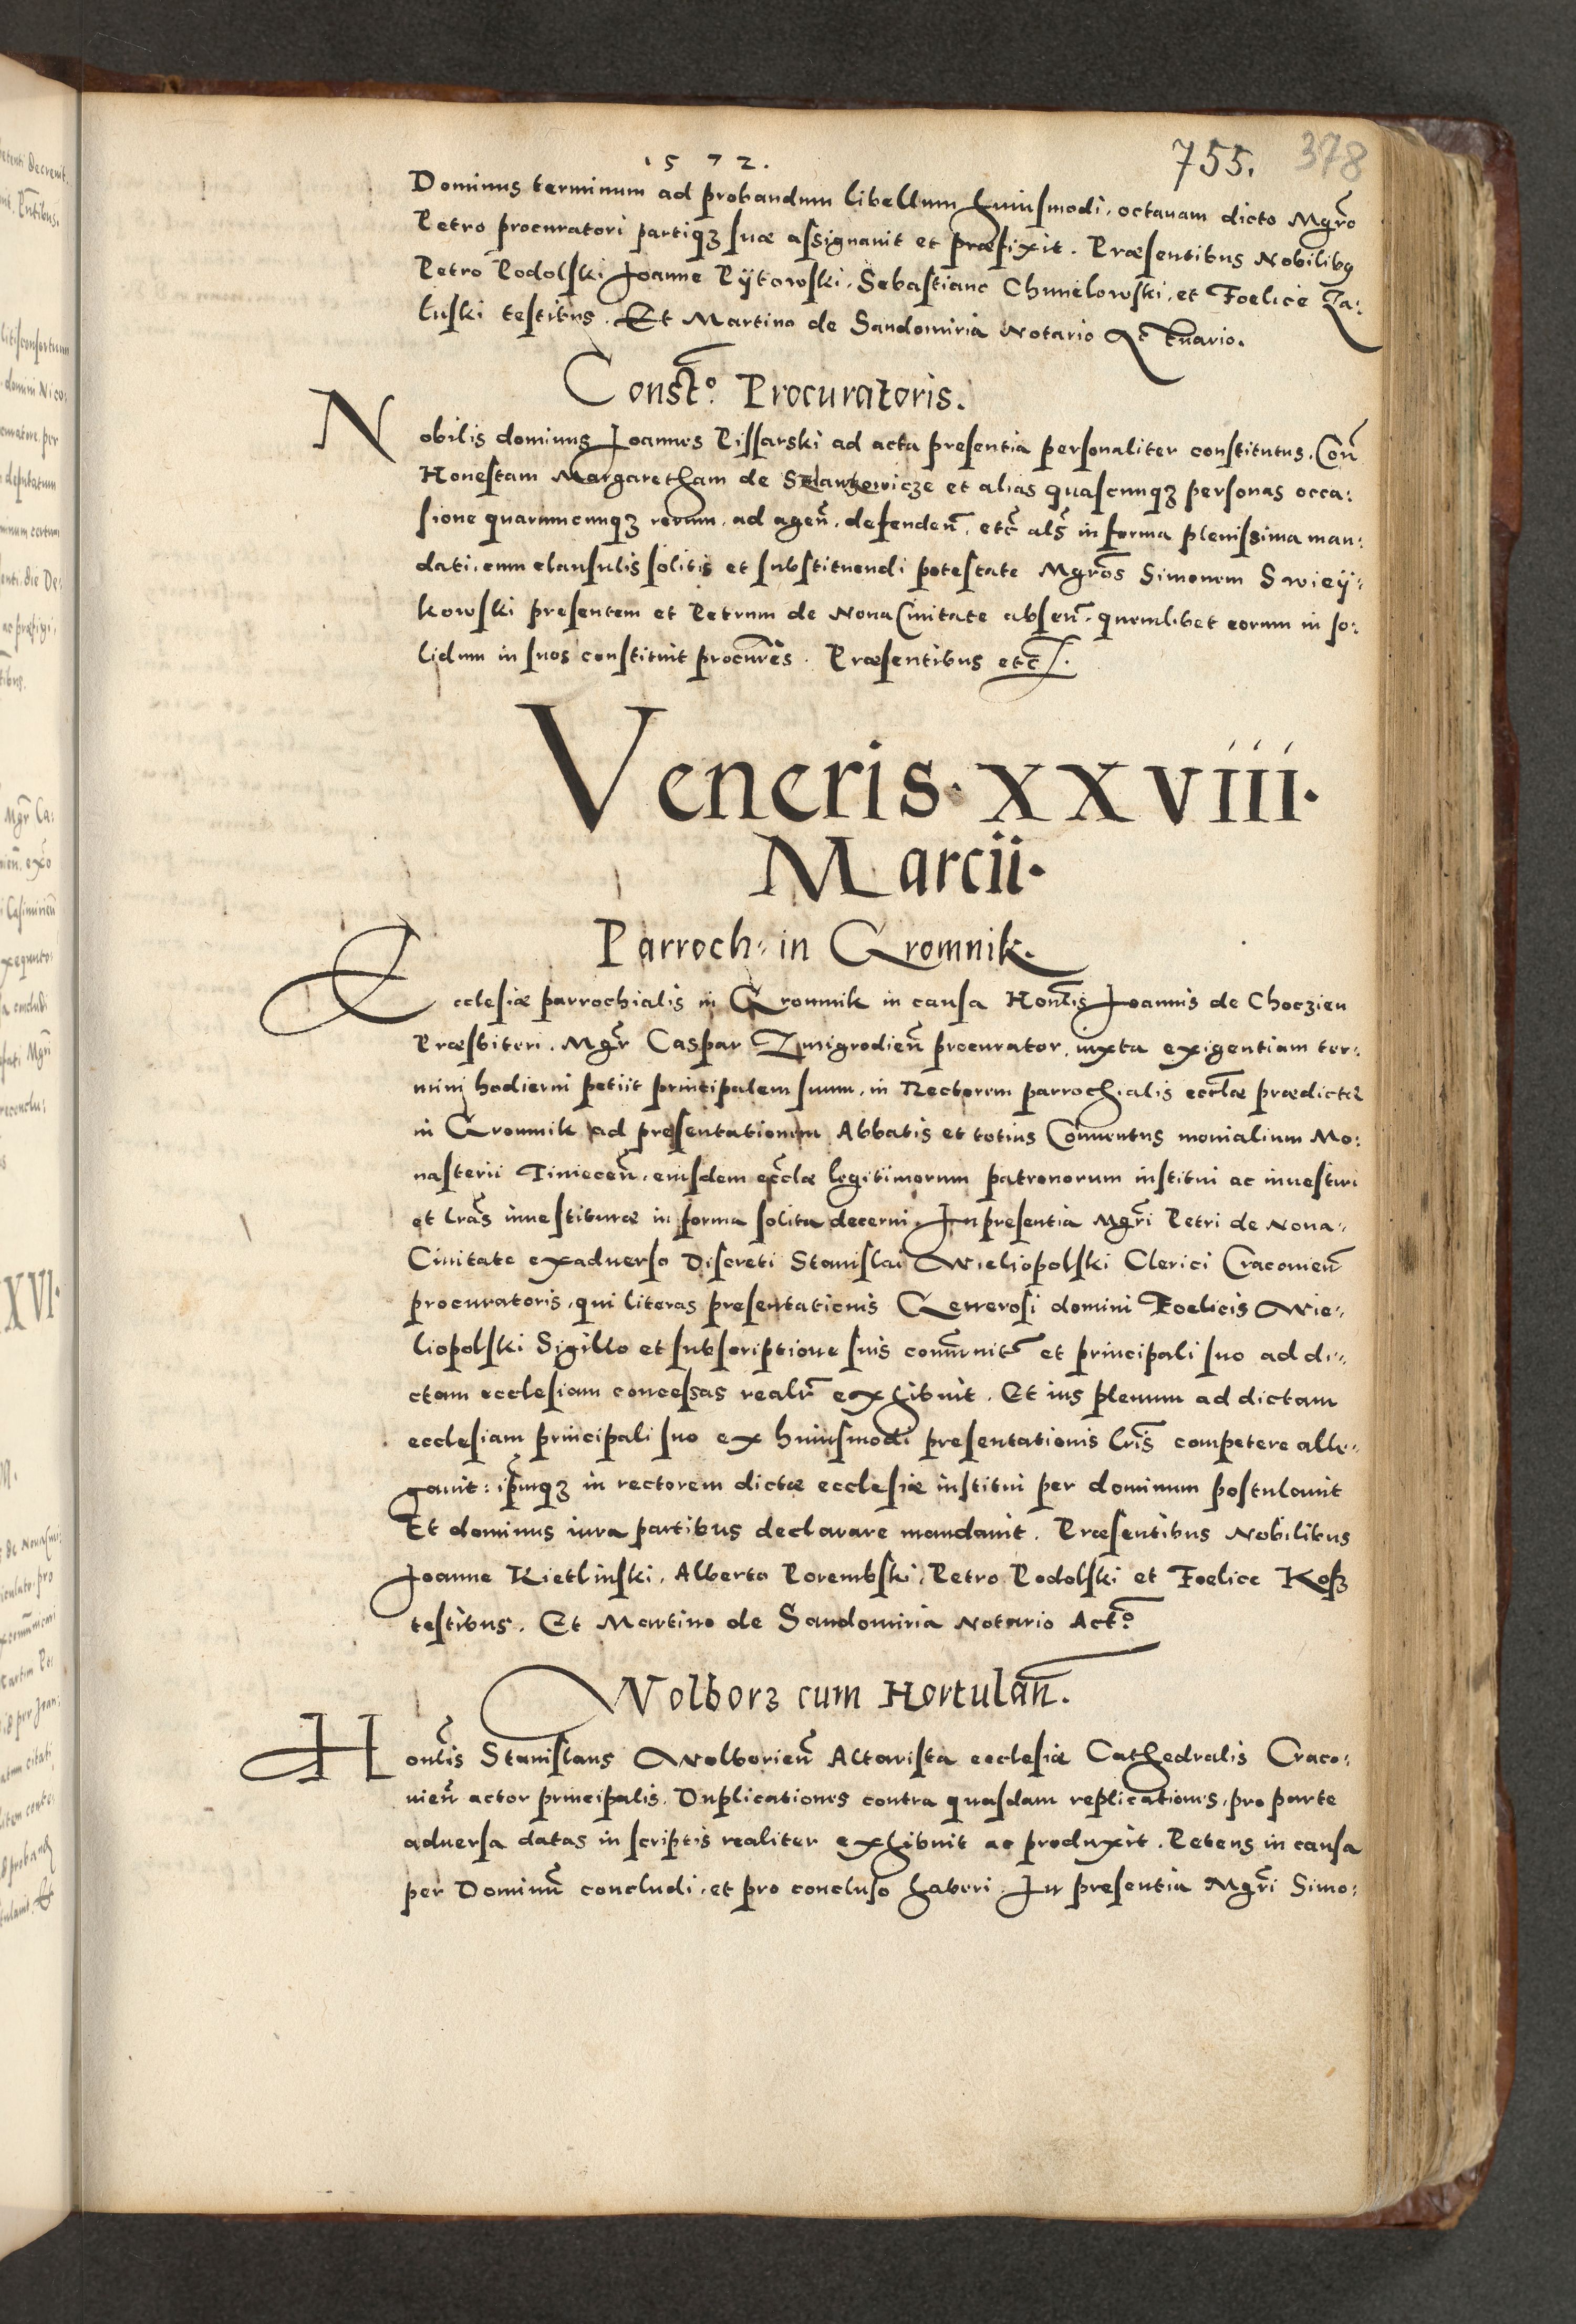 1572.
755.
378
Dominus terminum ad probandum libellum huiusmodi, octauam dicto Mgro
Petro procuratori partiqꝫ suæ assignauit et præfixit. Præsentibus Nobilibꝰ
Petro Podolski Joanne Rÿtowski, Sebastiano Chmielowski, et Foelice Za:
luski testibus. Et Martino de Sandomiria Notario Actuario.
Constᵒ. Procuratoris.
Nobilis dominus Joannes Pissarski ad acta presentia personaliter constitutus. Con̄
Honestam Margaretham de Szlankowicze et alias quascunqꝫ personas occa:
sione quarumcunqꝫ rerum, ad agen̄. defenden̄. etc̄ als̄ in forma plenissima man:
dati, cum clausulis solitis et substituendi potestate Mgros Simonem Swieÿ:
kowski presentem et Petrum de Noua Ciuitate absen̄. quemlibet eorum in so:
lidum in suos constituit procures. Præsentibus etc̄.
Veneris. XXVIII.
Marcii.
Parroch: in Gromnik.
Ecclesiæ parrochialis in Gromnik in causa Honlis Joannis de Choczien
Præsbiteri. Mgr Caspar Zmigrodien̄ procurator, iuxta exigentiam ter:
mini hodierni petiit principalem suum, in Rectorem parrochialis ecclæ prædictæ
in Gromnik ad presentationem Abbatis et totius Conuentus monialium Mo:
nasterii Tiniecen̄. eiusdem ecclæ legitimorum patronorum institui ac inuestiri
et lras inuestituræ in forma solita decerni. In presentia Mgri Petri de Noua=
Ciuitate exaduerso Discreti Stanislai Wieliopolski Clerici Cracouien̄
procuratoris, qui literas presentationis Generosi domini Foelicis Wie=
liopolski Sigillo et subscriptione suis communit̄ et principali suo ad di=
ctam ecclesiam concessas realr̄ exhibuit. Et ius plenum ad dictam
ecclesiam principali suo ex huiusmodi presentationis lris competere alle=
gauit: ip̄mqꝫ in rectorem dictæ ecclesiæ institui per dominum postulauit
Et dominus iura partibus declarare mandauit. Præsentibus Nobilibus
Joanne Kietlinski, Alberto Porembski, Petro Podolski et Foelice Kosz
testibus. Et Martino de Sandomiria Notario Actᵒ.
Wolborz cum Hortulan̄.
Honlis Stanislaus Wolborien̄ Altarista ecclesiæ Cathedralis Craco:
uien̄ actor principalis. Duplicationes contra quasdam replicationes, pro parte
aduersa datas in scriptis realiter exhibuit ac produxit. Petens in causa
per Dominū concludi, et pro concluso haberi. In presentia Mgri Simo: